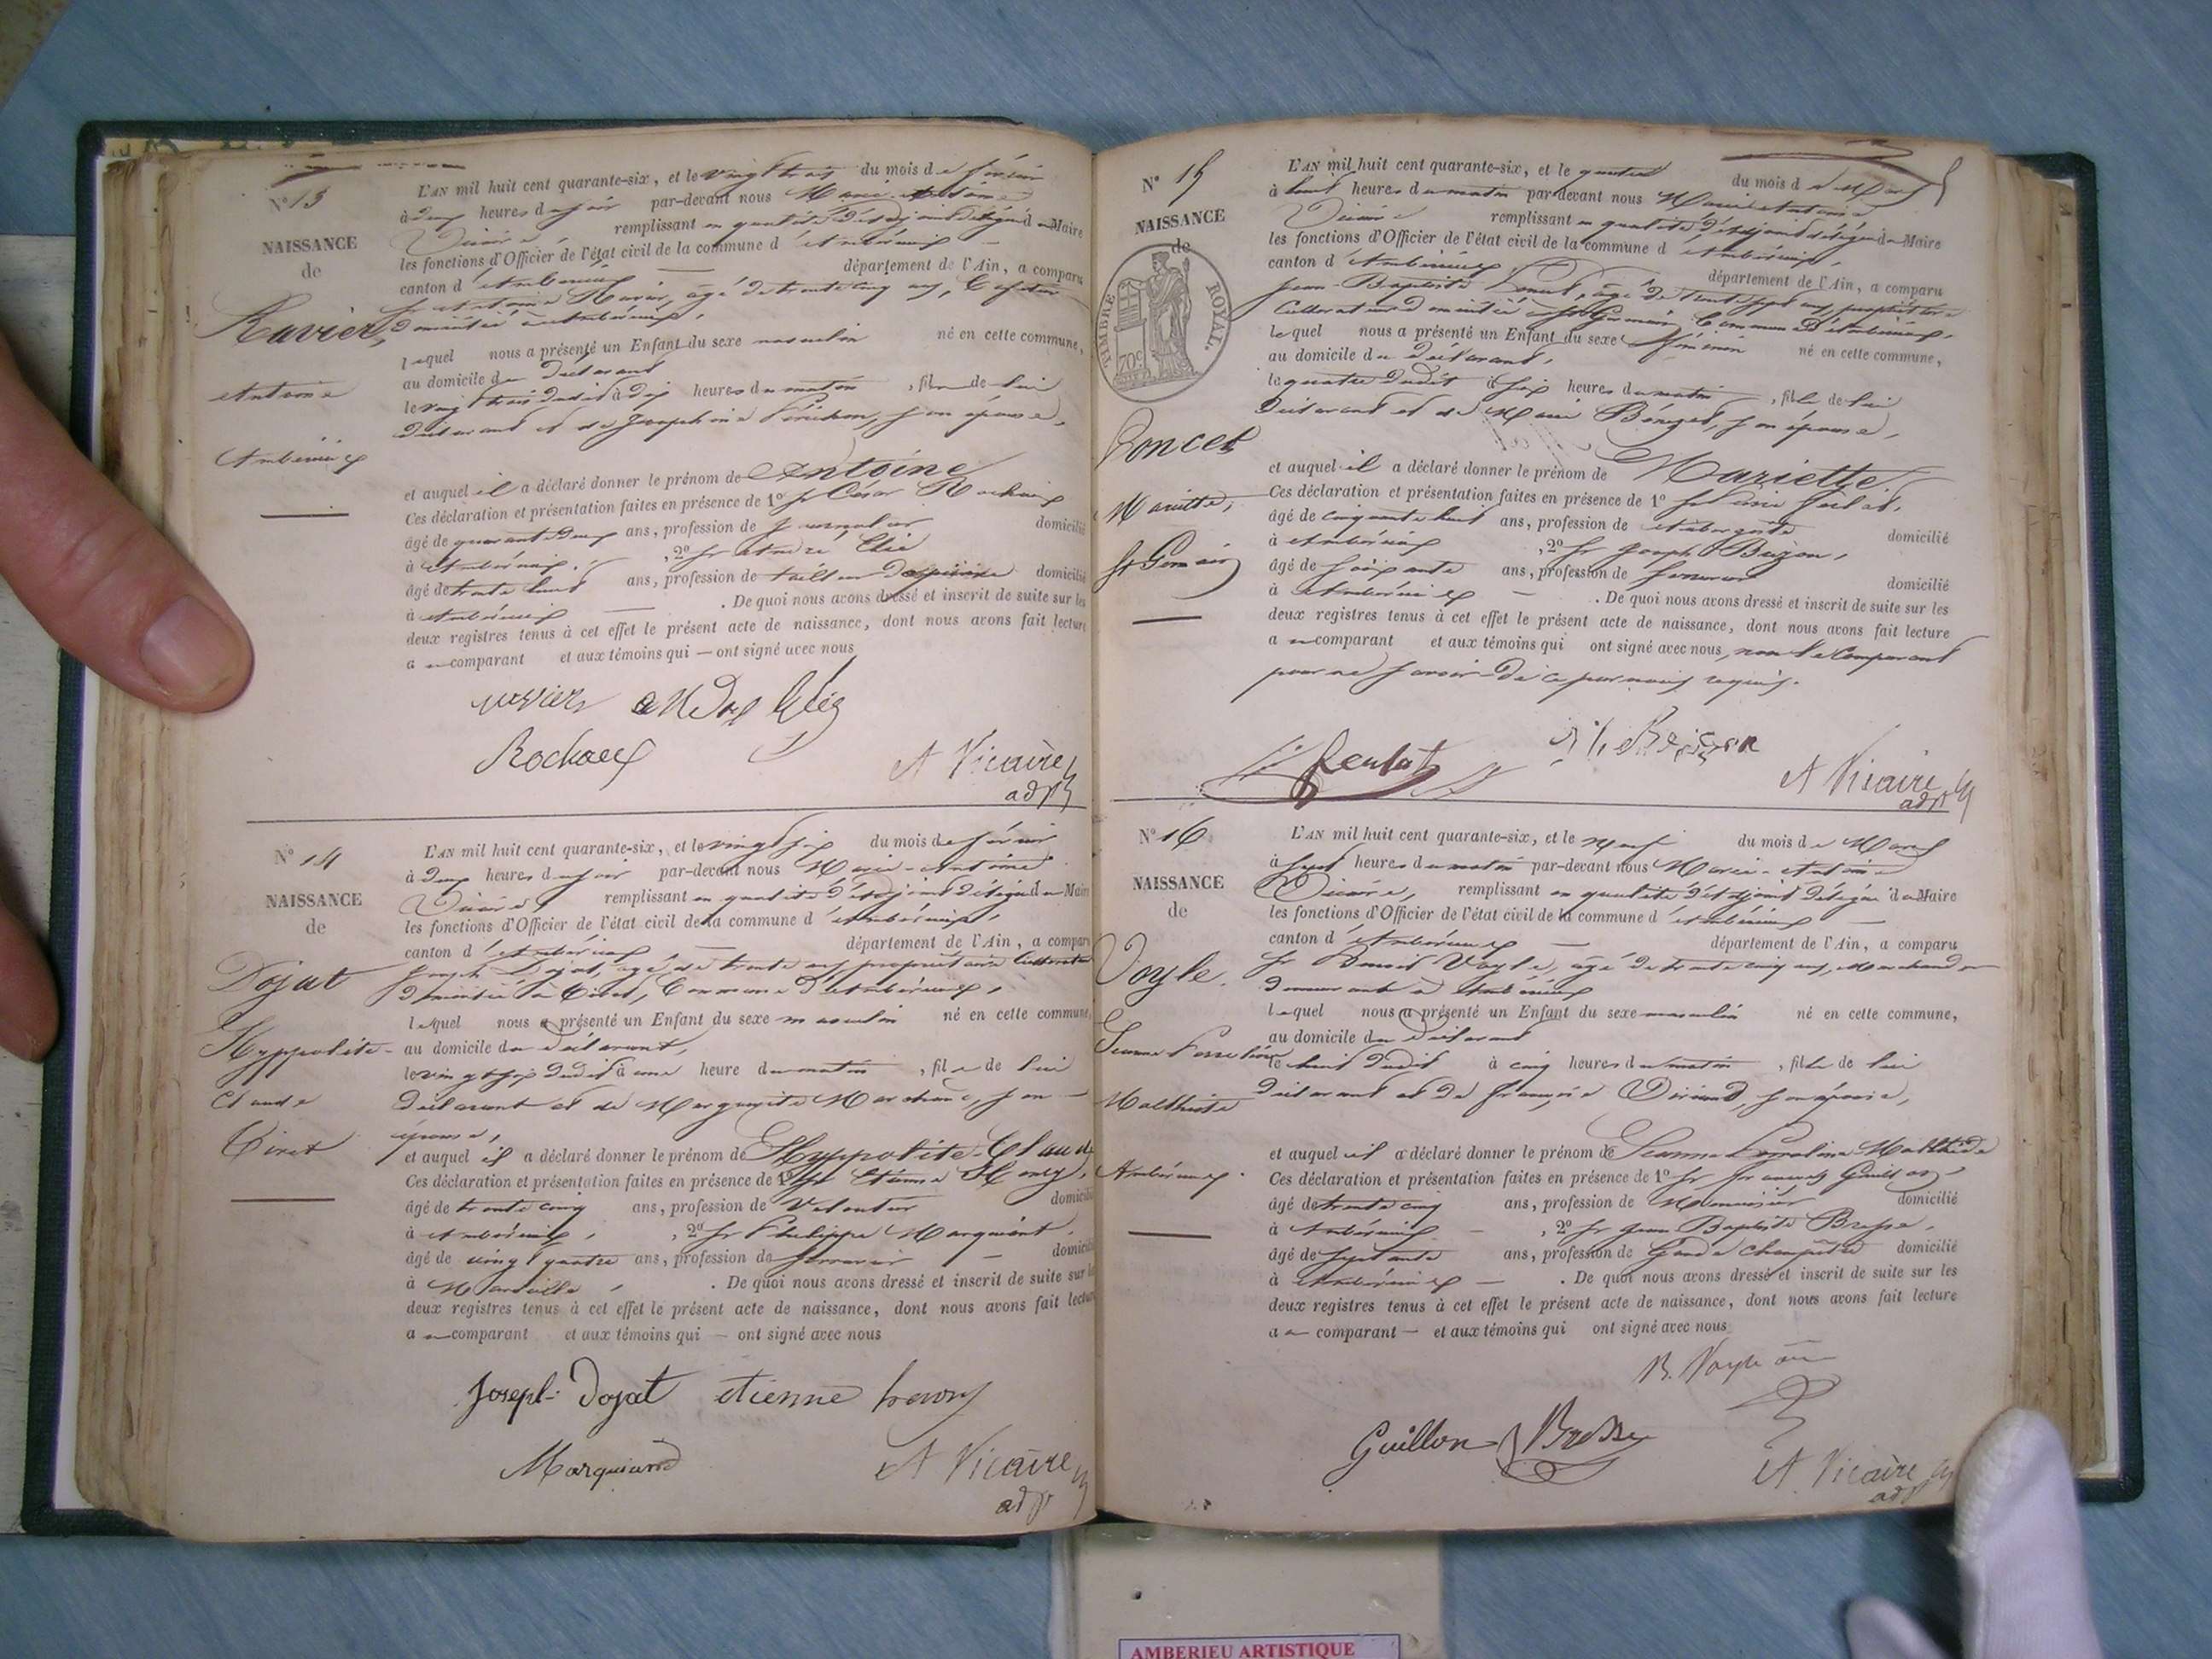 N° 13
NAISSANCE
de
Ravier,
Antoine
Ambérieux
L'AN mil huit cent quarante-six, et le vingt trois du mois de février
à deux heures du soir par-devant nous Marie-Antoine
Vicaire, remplissant en qualité d'adjoint délégué du Maire
les fonctions d'Officier de l'état civil de la commune d'Ambérieux
canton d'Ambérieux département de l'Ain, a comparu
Sr Antoine Ravier, âgé de trente cinq ans, Cafetier
domicilié à Ambérieux,
lequel nous a présenté un Enfant du sexe masculin né en cette commune,
au domicile du Déclarant
le vingt trois dudit à dix heures du matin, fils de lui
déclarant et de Josephine son épouse,
et auquel il a déclaré donner le prénom de Antoine
Ces déclaration et présentation faites en présence de 1° Sr César Rochaix
âgé de quarante deux ans, profession de journalier domicilié
à Ambérieux, 2° Sr André Elie
âgé de trente huit ans, profession de tailleur domicilié
à Ambérieux . De quoi nous avons dressé et inscrit de suite sur les
deux registres tenus à cet effet le présent acte de naissance, dont nous avons fait lecture
au comparant et aux témoins qui — ont signé avec nous
ravier
Rochaex
A Vicaire
adjt
N° 14
NAISSANCE
de
Dojat
Hyppolite-
Claude
L'AN mil huit cent quarante-six, et le vingt six du mois de février
à deux heures du soir par-devant nous Marie-Antoine
Vicaire, remplissant en qualité d'adjoint délégué du Maire
les fonctions d'Officier de l'état civil de la commune d'Ambérieux,
canton d'Ambérieux, département de l'Ain, a comparu
Joseph Dojat, âgé de trente ans propriétaire Cultivateur
domicilié à Commune d'Ambérieux,
lequel nous a présenté un Enfant du sexe masculin né en cette commune,
au domicile du Déclarant,
le vingt six dudit à une heure du matin, fils de lui
déclarant et de Marguerite son
épouse,
et auquel il a déclaré donner le prénom de Hyppolite-Claude
Ces déclaration et présentation faites en présence de 1° Sr Etienne Henry,
âgé de trente cinq ans, profession de domicilié
à Ambérieux, 2° Sr Philippe
âgé de vingt quatre ans, profession de serrurier domicilié
à Marseille, . De quoi nous avons dressé et inscrit de suite sur les
deux registres tenus à cet effet le présent acte de naissance, dont nous avons fait lecture
au comparant et aux témoins qui — ont signé avec nous
Joseph Dojat etienne henry
A Vicaire
adjt
N° 15
NAISSANCE
de
TIMBRE ROYAL.
70c
Poncet
Mariette,
St Germain
L'AN mil huit cent quarante-six, et le quatre du mois de Mars
à huit heures du matin par-devant nous Marie Antoine
Vicaire remplissant en qualité d'adjoint délégué du Maire
les fonctions d'Officier de l'état civil de la commune d'Ambérieux,
canton d'Ambérieux, département de l'Ain, a comparu
Jean-Baptiste Poncet, âgé de trente sept ans, propriétaire
Cultivateur domicilié à St Germain Commune d'Ambérieux,
lequel nous a présenté un Enfant du sexe féminin né en cette commune,
au domicile du Déclarant,
le quatre dudit à six heures du matin, fille de lui
Déclarant et de Marie son épouse,
et auquel il a déclaré donner le prénom de Mariette
Ces déclaration et présentation faites en présence de 1° Sr
âgé de cinquante huit ans, profession de aubergiste domicilié
à Ambérieux, 2° Sr Joseph
âgé de soixante ans, profession de domicilié
à Ambérieux — . De quoi nous avons dressé et inscrit de suite sur les
deux registres tenus à cet effet le présent acte de naissance, dont nous avons fait lecture
au comparant et aux témoins qui ont signé avec nous, non le Comparant
pour ne savoir de ce par nous requis.
A Vicaire
adjt
N° 16
NAISSANCE
de
Voyle.
Jeanne
Ambérieux.
L'AN mil huit cent quarante-six, et le Neuf du mois de Mars
à sept heures du matin par-devant nous Marie-Antoine
Vicaire, remplissant en qualité d'adjoint délégué du Maire
les fonctions d'Officier de l'état civil de la commune d'Ambérieux
canton d'Ambérieux — département de l'Ain, a comparu
Sr Benoit Voyle, âgé de trente cinq ans, Marchand
demeurant à Ambérieux
lequel nous a présenté un Enfant du sexe masculin né en cette commune,
au domicile du Déclarant
le huit dudit à cinq heures du matin, fille de lui
Déclarant et de Françoise son épouse,
et auquel il a déclaré donner le prénom de Jeanne
Ces déclaration et présentation faites en présence de 1° Sr François Guillon,
âgé de trente cinq ans, profession de Menuisier domicilié
à Ambérieux — , 2° Sr Jean Baptiste Bresse,
âgé de septante ans, profession de Garde champêtre domicilié
à Ambérieux — . De quoi nous avons dressé et inscrit de suite sur les
deux registres tenus à cet effet le présent acte de naissance, dont nous avons fait lecture
au comparant — et aux témoins qui ont signé avec nous
B. Voyle
Guillon Bresse
A Vicaire
adjt
AMBERIEU ARTISTIQUE